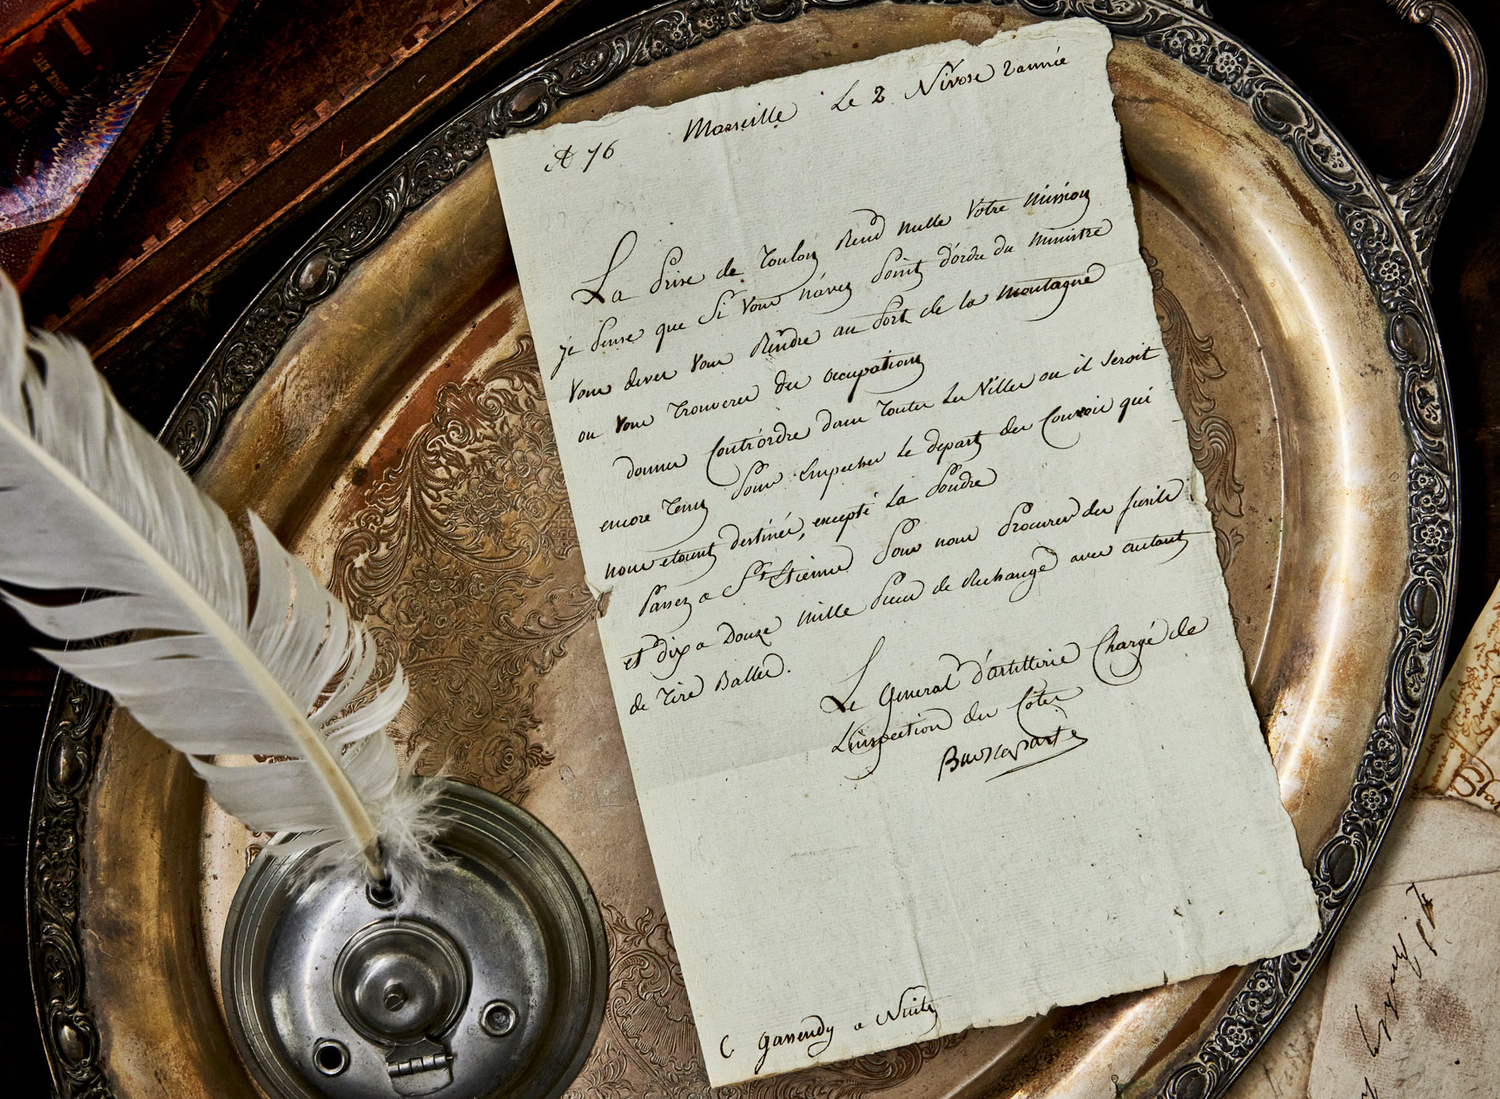 A 76
Marseille Le 2 Nivose 2 année
La prise de Toulon Rend nulle Votre Mission
je pense que Si Vous n'avez point d'ordre du Ministre
Vous devez Vous Rendre au port de la Montagne
ou Vous Trouverez des occupations
donnez Contr'ordre dans Toutes Les Villes ou il Seroit
encore Tems pour Empecher Le depart des Convois qui
nous etaient destinés, excepté La poudre
Passez a St. Etienne pour nous procurer des fusils
et dix a Douze Mille pieces de Rechange avec autant
de Tire Balles.
Le General d'artillerie Chargé de
L'inspection des Cotes
Buonaparte
C Gassendy a